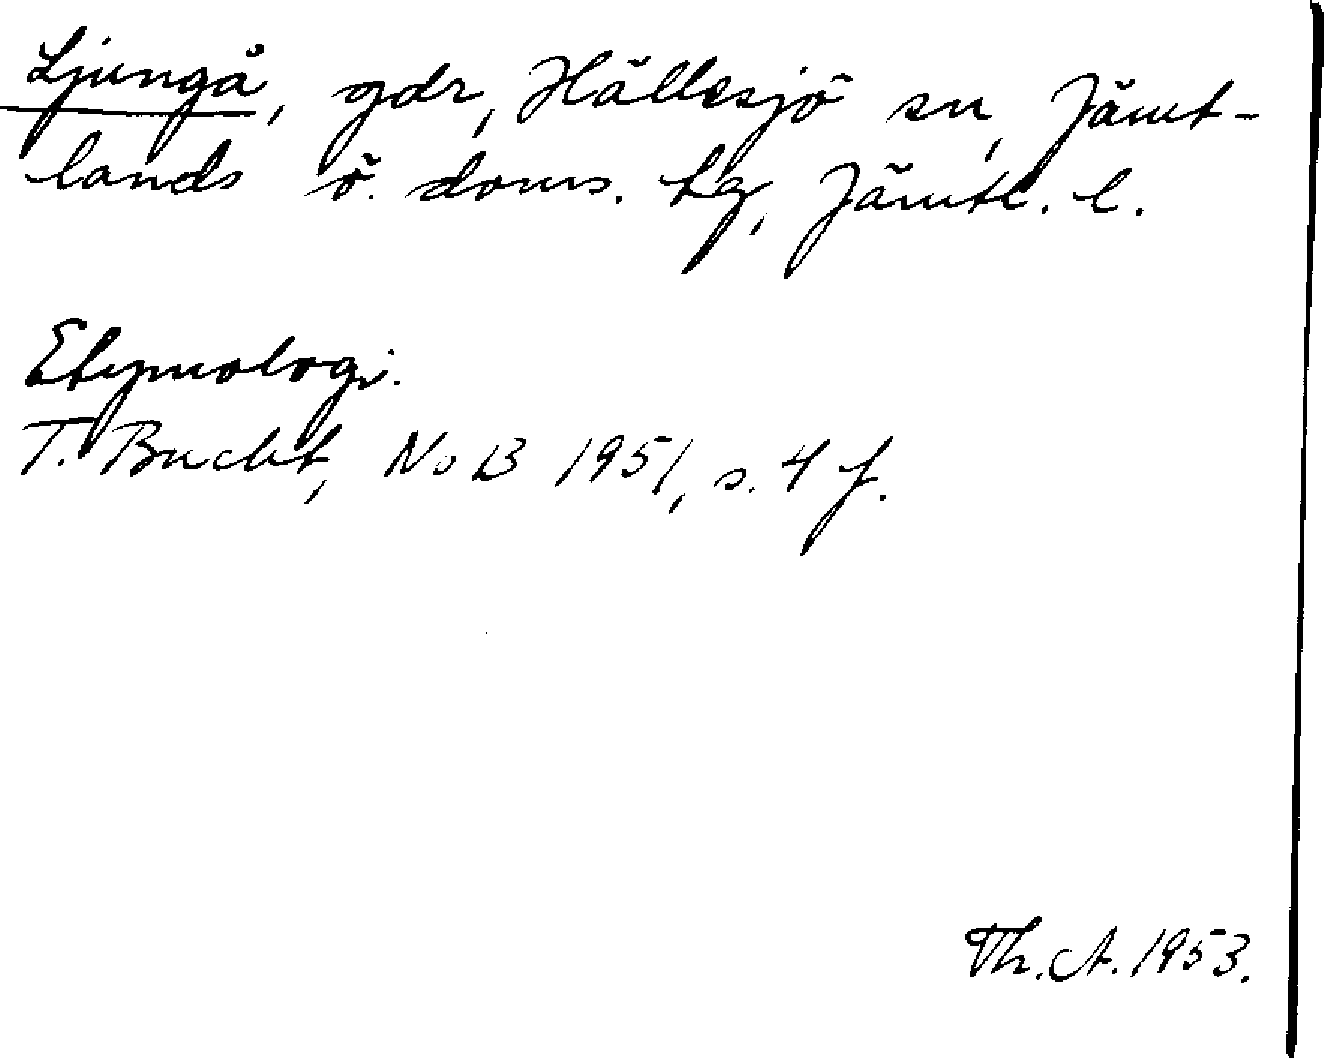 Ljungå, gdr, Hällesjö sn, Jämt-
lands ö. doms. tg, Jämtl. l.
Etymologi.
T. Bucht, NoB 1951, s. 4 f.
Th. A. 1953.